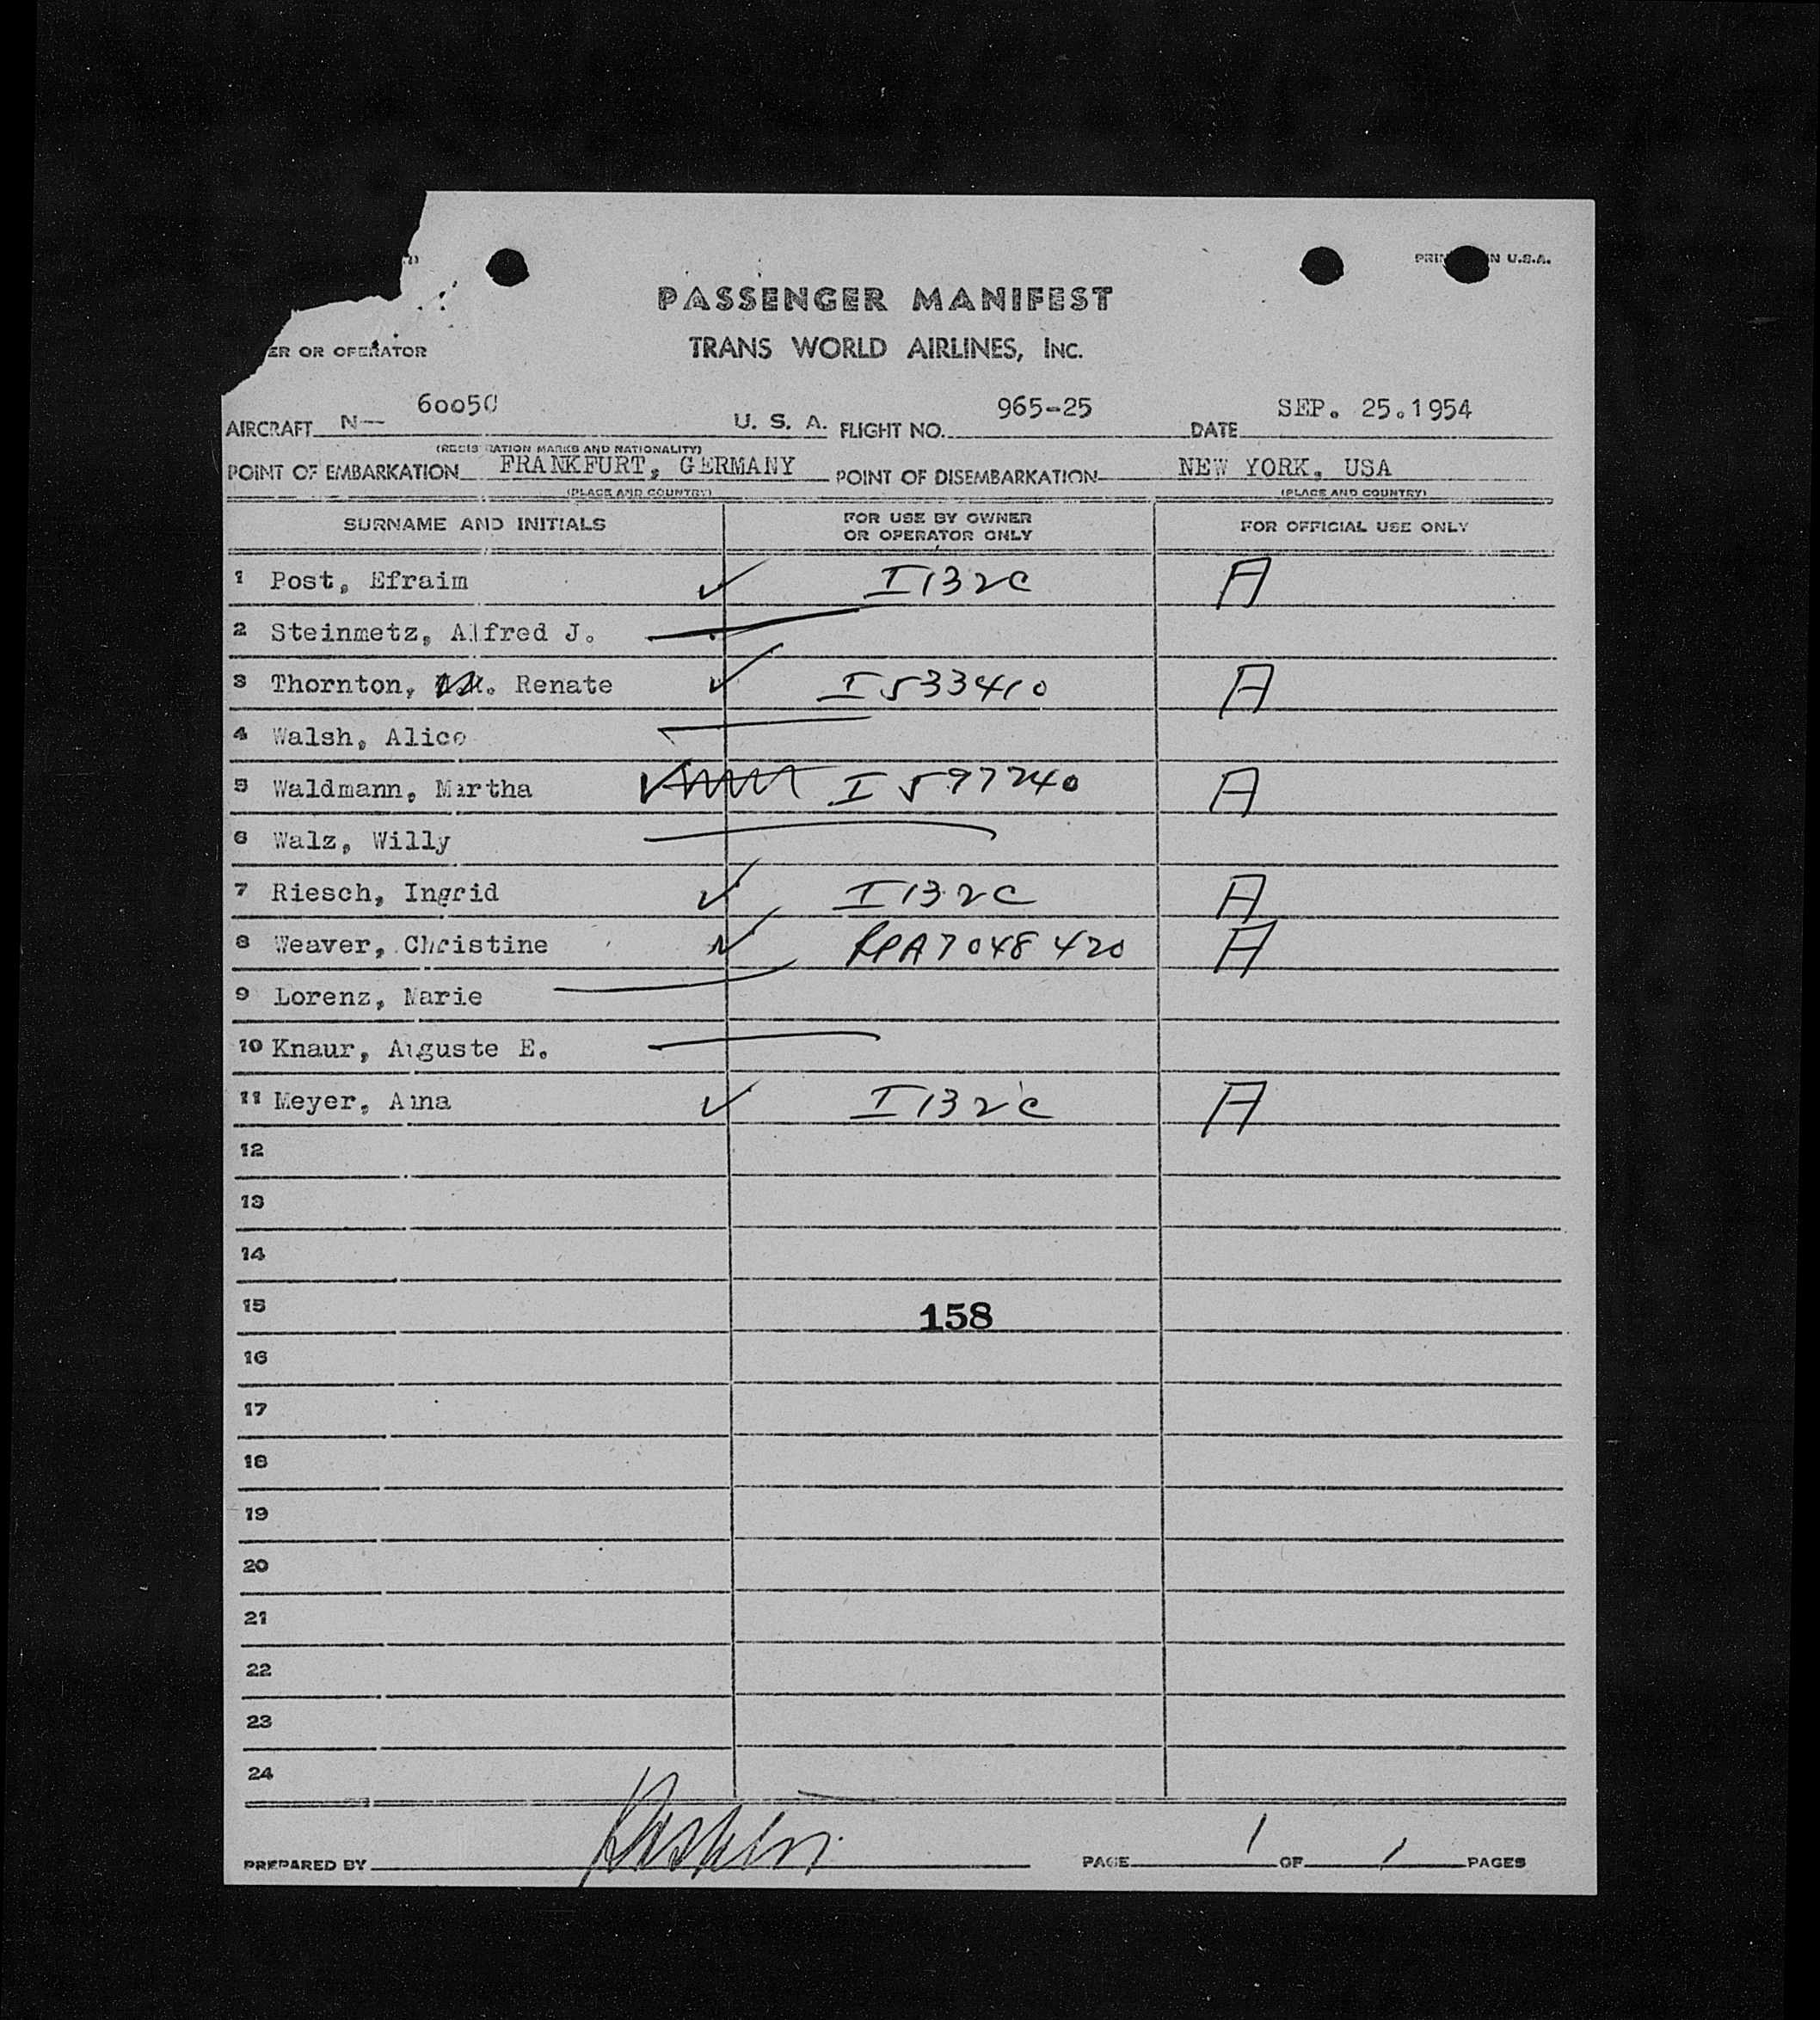 PASSENGER MANIFEST
ER OR OPERATOR
TRANS WORLD AIRLINES, INC.
AIRCRAFT N— 6005C U. S. A. FLIGHT NO. 965-25 DATE SEP. 25.1954
(REGISTRATION MARKS AND NATIONALITY)
POINT OF EMBARKATION FRANKFURT, GERMANY POINT OF DISEMBARKATION NEW YORK, USA
(PLACE AND COUNTRY) (PLACE AND COUNTRY)
SURNAME AND INITIALS FOR USE BY OWNER OR OPERATOR ONLY FOR OFFICIAL USE ONLY
1 Post, Efraim I132C A
2 Steinmetz, Alfred J.
3 Thornton, Renate I533410 A
4 Walsh, Alice
5 Waldmann, Martha I597240 A
6 Walz, Willy
7 Riesch, Ingrid I132C A
8 Weaver, Christine RPA7048420 A
9 Lorenz, Marie
10 Knaur, Auguste E.
11 Meyer, Anna I132C A
12
13
14
15 158
16
17
18
19
20
21
22
23
24
PREPARED BY PAGE 1 OF 1 PAGES